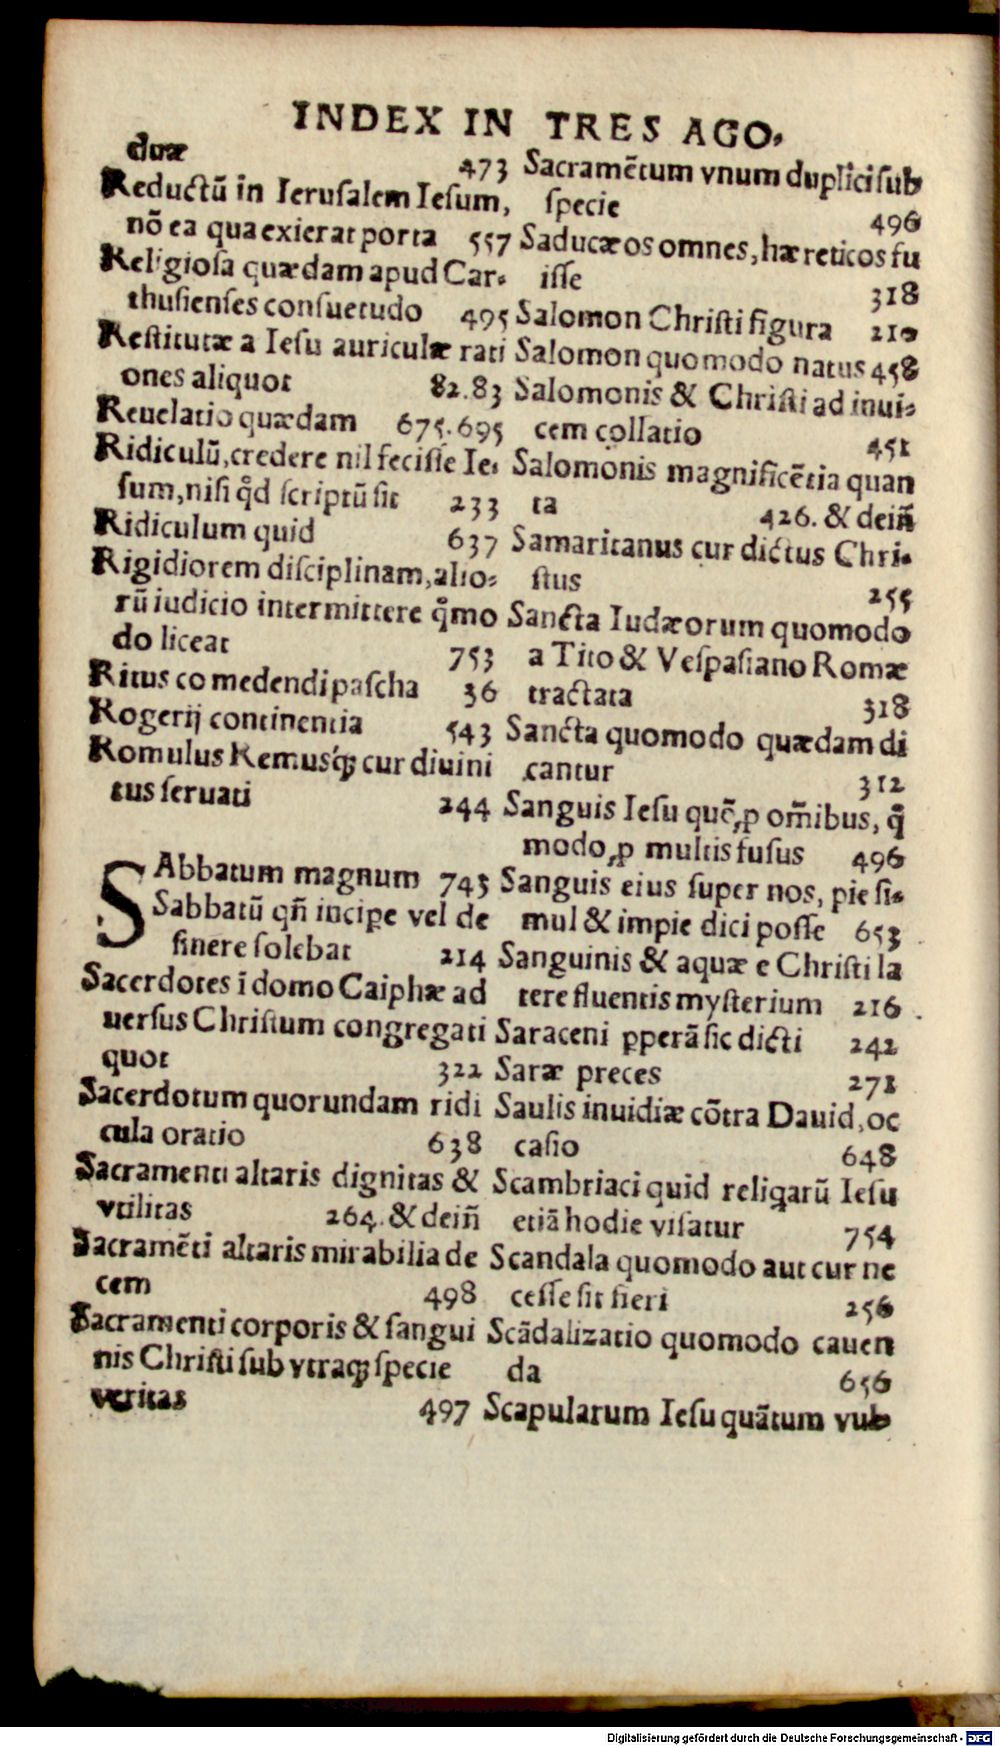 INDEX IN TRES AGO,
duæ 473
Reductū in Ieruſalem Ieſum,
nō ea qua exierat porta 557
Religioſa quædam apud Car-
thuſienſes conſuetudo 495
Reſtitutæ a Ieſu auriculæ rati
ones aliquot 82.83
Reuelatio quædam 675.695
Ridiculū, credere nil feciſſe Ie-
ſum, niſi qd̛ ſcriptū ſit 233
Ridiculum quid 637
Rigidiorem diſciplinam, alio-
rū iudicio intermittere qͦmo
do liceat 753
Ritus comedendi paſcha 36
Rogerij continentia 543
Romulus Remusq́; cur diuini
tus ſeruati 244
SAbbatum magnum 743
Sabbatū qñ incipe̱ vel de
ſinere ſolebat 214
Sacerdotes ī domo Caiphæ ad
uerſus Chriſtum congregati
quot 322
Sacerdotum quorundam ridi
cula oratio 638
Sacramenti altaris dignitas &
vtilitas 264. & deiñ
Sacramēti altaris mirabilia de
cem 498
Sacramenti corporis & ſangui
nis Chriſti ſub vtraq; ſpecie
veritas 497
Sacramētum vnum duplici ſub
ſpecie 496
Saducæos omnes, hæreticos fu
iſſe 318
Salomon Chriſti figura 210
Salomon quomodo natus 458
Salomonis & Chriſti ad inui-
cem collatio 451
Salomonis magnificētia quan
ta 426. & deiñ
Samaritanus cur dictus Chri-
ſtus 255
Sancta Iudæorum quomodo
a Tito & Veſpaſiano Romæ
tractata 318
Sancta quomodo quædam di
cantur 312
Sanguis Ieſu quō ꝓ om̄ibus, qͦ
modo ꝓ multis fuſus 496
Sanguis eius ſuper nos, pie ſi-
mul & impie dici poſſe 653
Sanguinis & aquæ e Chriſti la
tere fluentis myſterium 216
Saraceni ꝑperā ſic dicti 242
Saræ preces 271
Saulis inuidiæ cōtra Dauid, oc
caſio 648
Scambriaci quid reliq̄arū Ieſu
etiā hodie viſatur 754
Scandala quomodo aut cur ne
ceſſe ſit fieri 256
Scādalizatio quomodo cauen
da 656
Scapularum Ieſu quātum vub
Digitalisierung gefördert durch die Deutsche Forschungsgemeinschaft - DFG